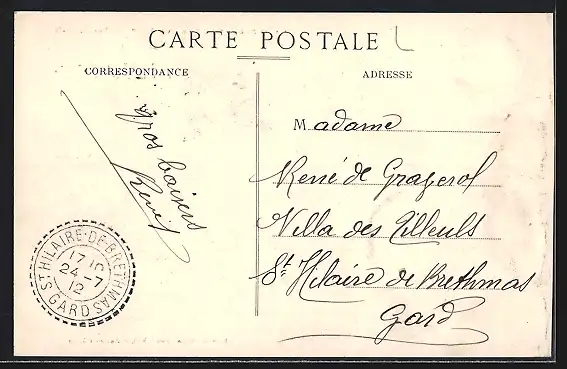 CARTE POSTALE
CORRESPONDANCE
ADRESSE
Gros baisers
René
Madame
René de Grazerol
Villa des Tilleuls
St Hilaire de Brethmas
Gard
ST HILAIRE-DE-BRETHMAS
17 10
24 -7
12
GARD